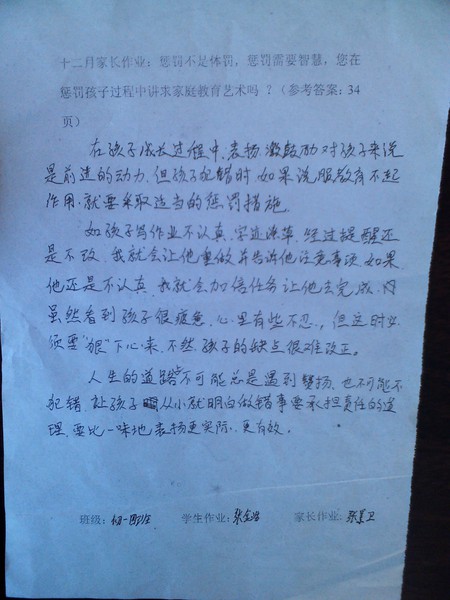 十二月家长作业：惩罚不是体罚，惩罚需要智慧，您在
惩罚孩子过程中讲求家庭教育艺术吗？（参考答案：34
页）
在孩子成长过程中,表扬、激鼓励对孩子来说
是前进的动力,但孩子犯错时,如果说服教育不起
作用,就要采取适当的惩罚措施。
如孩子写作业不认真,字迹潦草,经过提醒还
是不改,我就会让他重做并告诉他注意事项,如果
他还是不认真,我就会加倍任务让他去完成,
虽然看到孩子很疲惫,心里有些不忍,但这时必
须要"狠"下心来,不然,孩子的缺点很难改正。
人生的道路不可能总是遇到赞扬,也不可能不
犯错,让孩子从小就明白做错事要承担责任的道
理,要比一味地表扬更实际、更有效。
班级： 学生作业: 张 家长作业: 张 卫